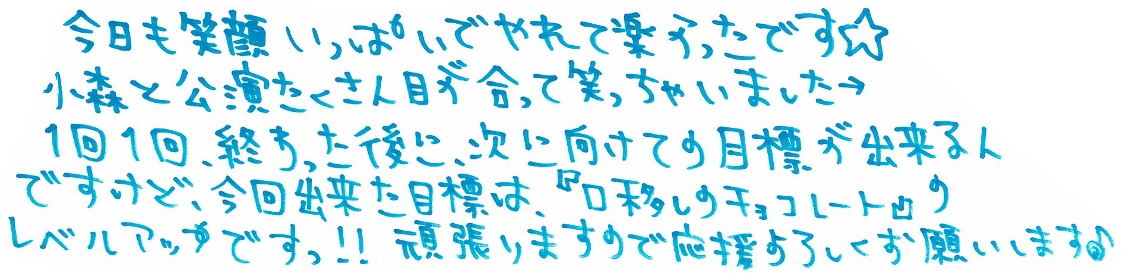 今日も笑顔いっぱいでやれて楽かったです☆
小森と公演たくさん目が合って笑っちゃいました→
1回1回、終わった後に、次に向けての目標が出来るん
ですけど、今回出来た目標は、『口移しのチョコレート』の
レベルアップですっ!! 頑張りますので応援よろしくお願いします♪